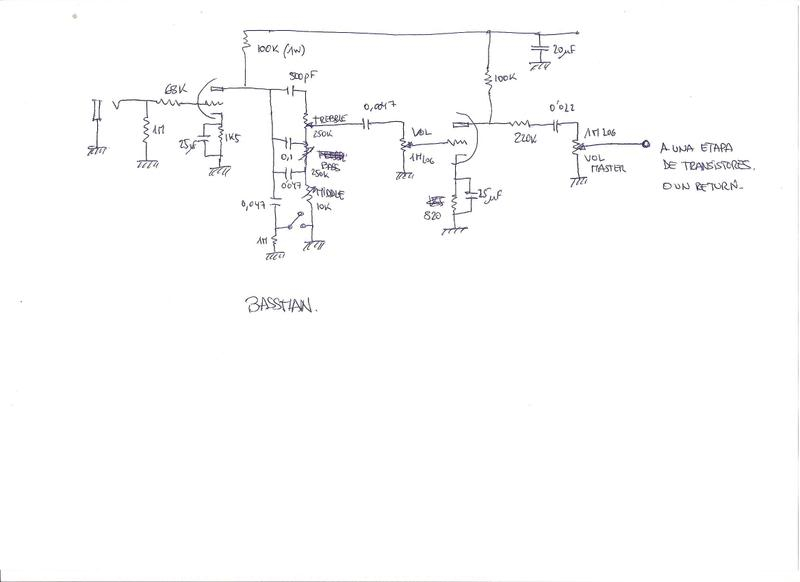 100K (1W)
20µF
500pF
100K
68K
TREBBLE
250K
0,0047
VOL
0'022
220K
1M LOG
VOL
MASTER
A UNA ETAPA
DE TRANSISTORES.
O UN RETURN.
1M
25µF
1K5
0,1
BASS
250K
1M LOG
0'047
MIDDLE
10K
25µF
820
0,047
1M
BASSMAN.